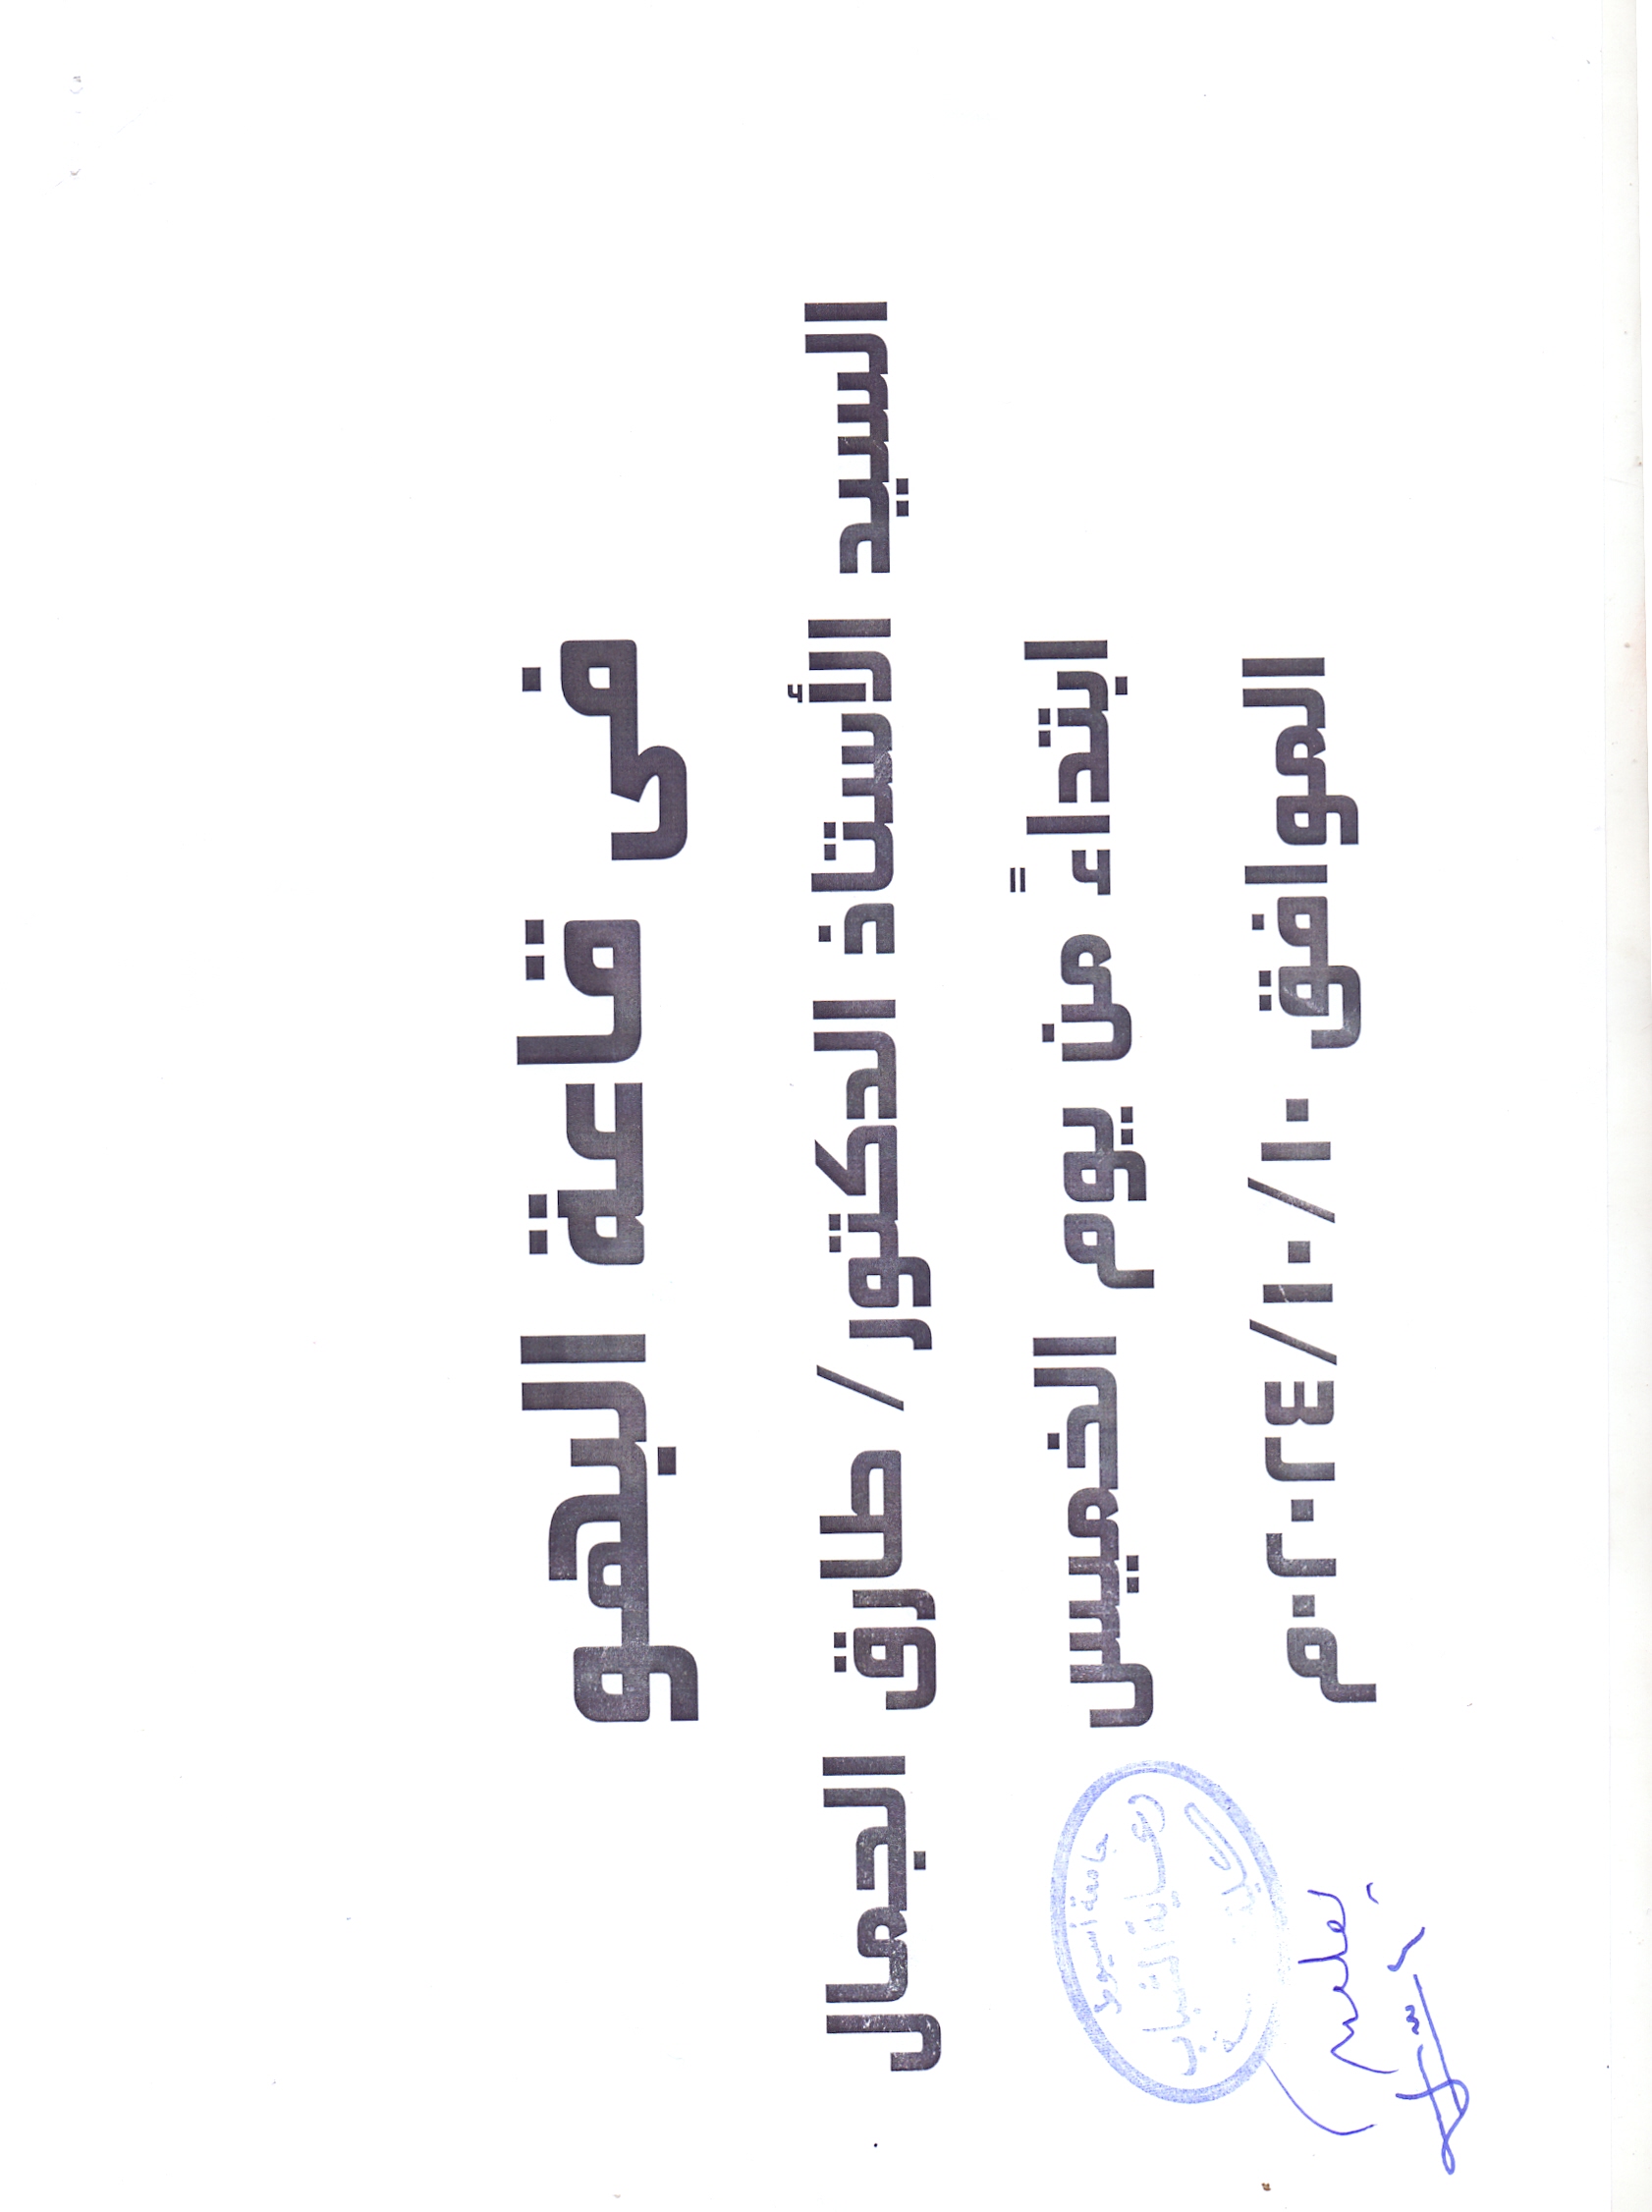 فى قاعة البهو
السيد الأستاذ الدكتور/ طارق الجمال
ابتداءً من يوم الخميس
الموافق ١٠/١٠/٢٠٢٤م
جامعة أسيوط
رعاية الشباب